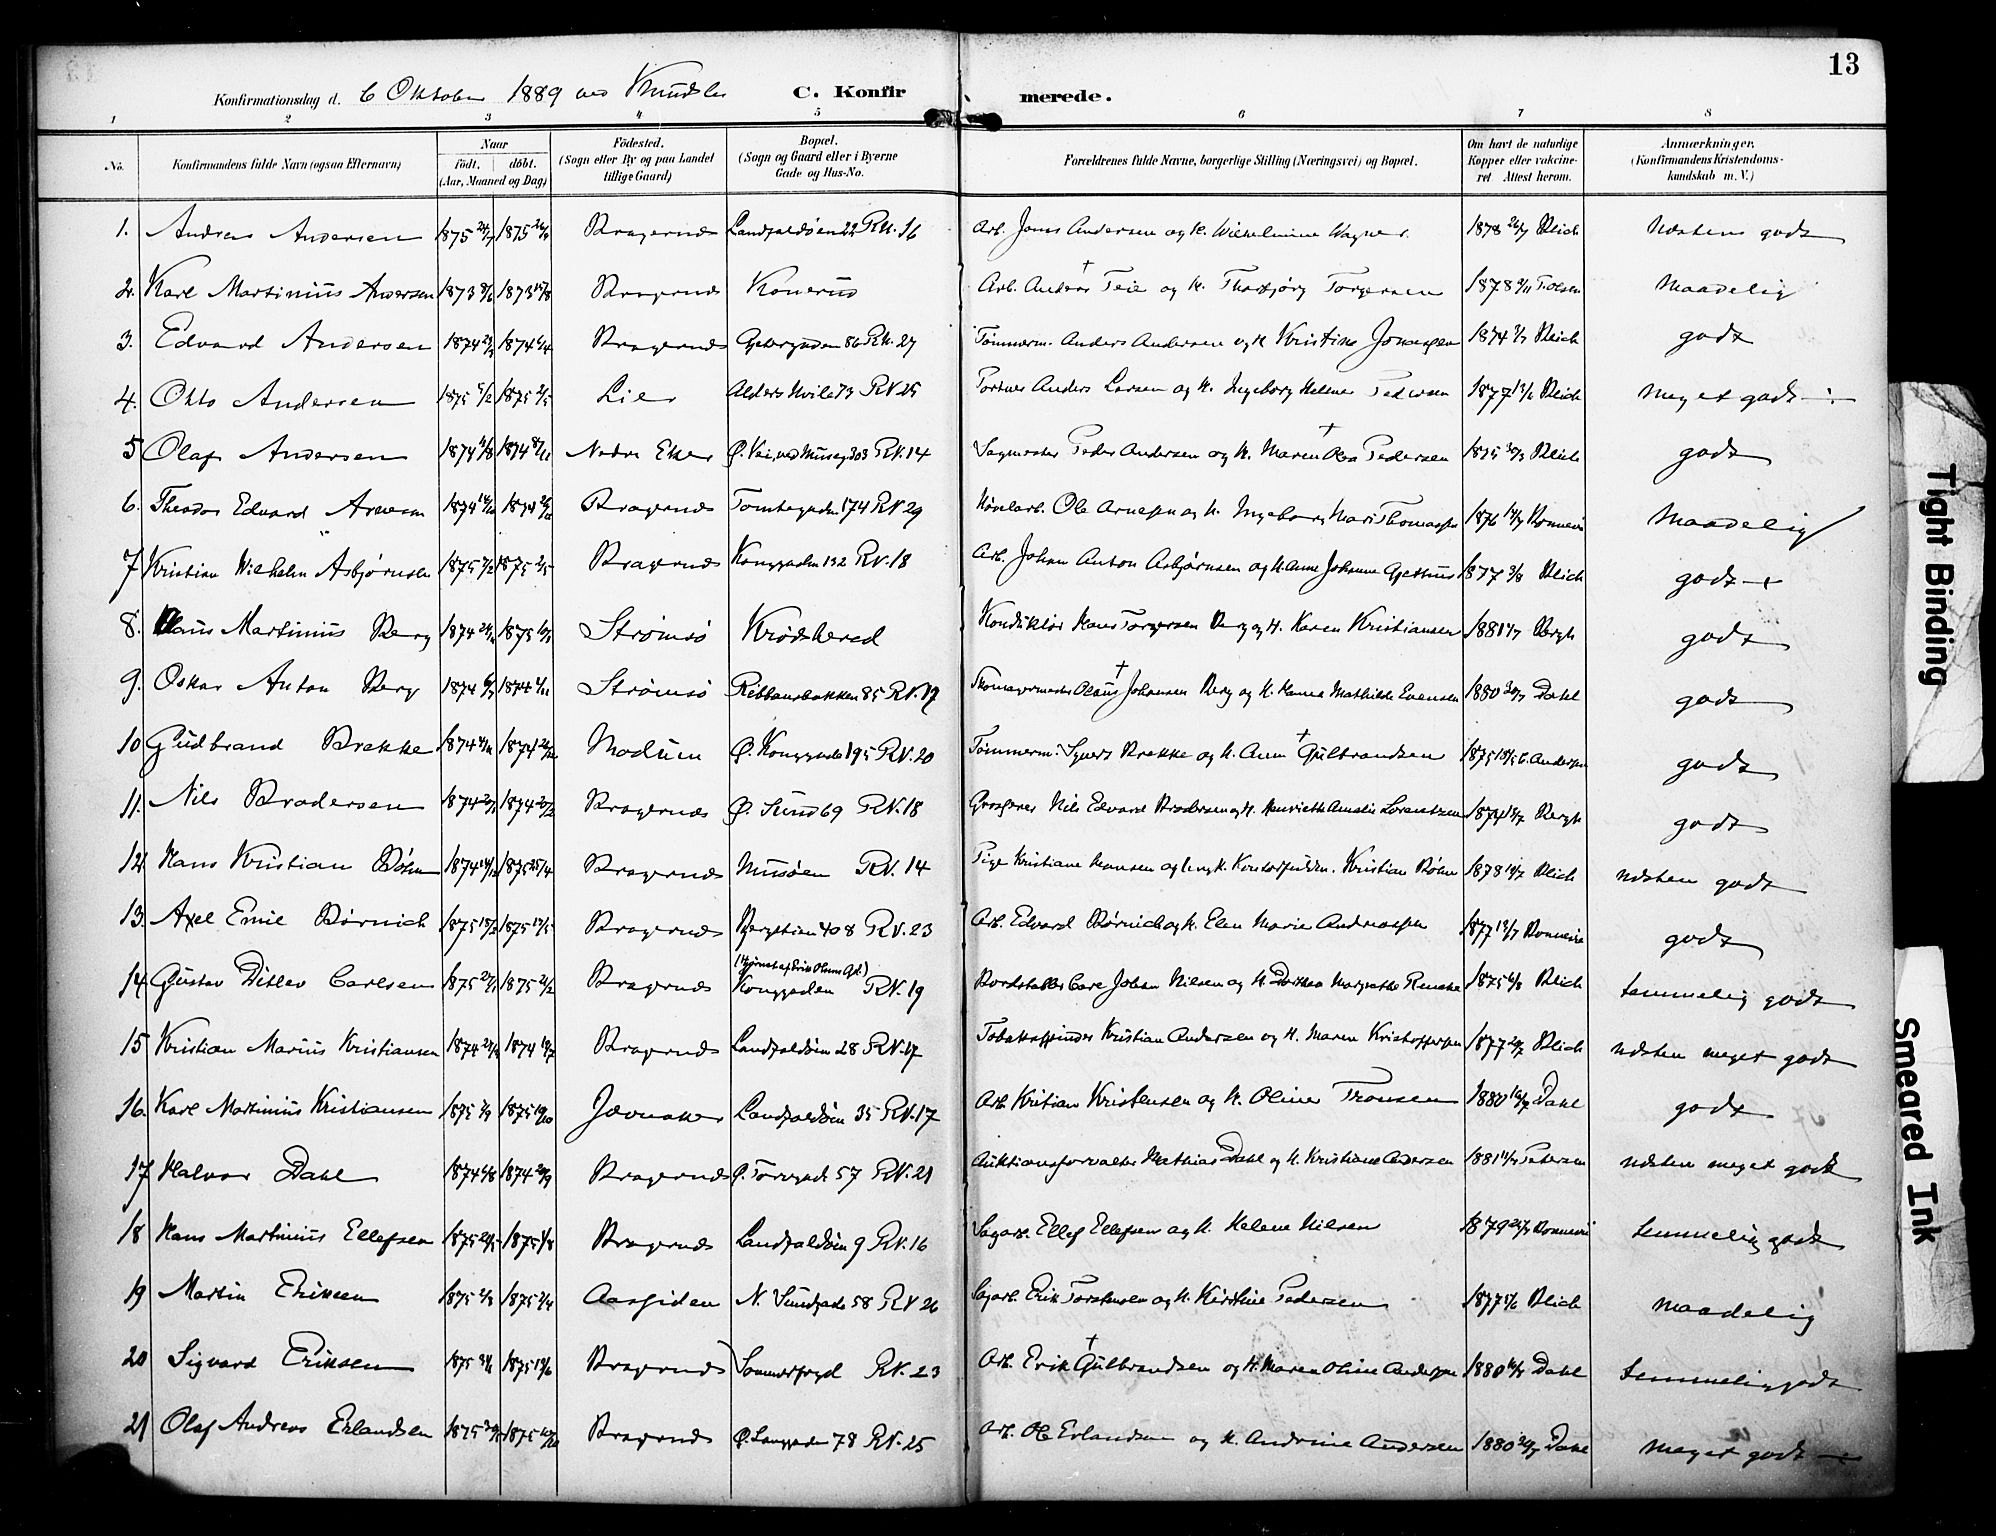 13
Konfirmationsdag d. 6 Oktober 1889 ved Knudsen C. Konfirmerede.
1 2 3 4 5 6 7 8
No. Konfirmandens fulde Navn (ogsaa Efternavn) Naar födt. döbt. (Aar, Maaned og Dag) Födested. (Sogn eller By og paa Landet tillige Gaard) Bopæl. (Sogn og Gaard eller i Byerne Gade og Hus-No. Forældrenes fulde Navne, borgerlige Stilling (Næringsvei) og Bopæl. Om havt de naturlige Kopper eller vakcineret. Attest herom. Anmærkninger. (Konfirmandens Kristendomskundskab m. V.)
1. Andreas Andersen 1875 1875 Bragernæs Landfaldöen 22 RN. 16 Arb. Jens Andersen og H. Wilhelmine Wagner. 1878 Blich Næsten godt
2. Karl Martinius Andersen 1873 1873 Bragernæs Konerud Arb. Andreas Teie og H. Thorbjörg Torgersen 1878 T. Olsen Maadelig
3. Edvard Andersen 1874 1874 Bragernæs 86 RN. 27 Tømmerm. Anders Andersen og H. Kristine 1874 Blich godt
4. Otto Andersen 1875 1875 Lier Alders Hvile 73 RN 25 Portner Anders Larsen og H. Ingeborg Helene Pedersen 1877 Blich Meget godt
5 Olaf Andersen 1874 1874 Nedre Eker Ø. 303 RN. 14 Sagmester Peder Andersen og H. Maren Olea Pedersen 1875 Blich godt
6. Theodor Edvard Arnesen 1874 1874 Bragernæs Tomtegaden 174 RN 29 Høvlarb. Ole Arnesen og H. Ingeborg Mari Thomassen 1876 Bonnevie Maadelig
7 Kristian Wilhelm Asbjørnsen 1875 1875 Bragernæs Konggaden 132 RN. 18 Arb. Johan Anton Asbjørnsen og H. Anne Johanne 1877 Blich godt +
8. Hans Martinius Berg 1874 1875 Strømsø Krødshered Konduktør Hans Torgersen Berg og H. Karen Kristiansen 1881 Bergh godt
9. Oskar Anton Berg 1874 1874 Strømsø Ribbansbakken 85 RN. 17 Skomagermester Olaus Johansen Berg og H. Hanna Mathilde Evensen 1880 Dahl godt
10 Gudbrand Brekke 1874 1874 Modum Ø. Konggade 195 RN. 20 Tømmerm. Syvert Brekke og H. Anne Gulbrandsen 1875 C. Andersen godt
11. Nils Brodersen 1874 1874 Bragernæs Ø. Sund 69 RN. 18 Nils Edvard Brodersen og H. Henriette Amalie Lorentzen 1874 Bergh godt
12. Hans Kristian Bøhm 1874 1875 Bragernæs Musøen RN. 14 Pige Kristiane Hansen og Kristian Bøhm 1878 Blich næsten godt
13. Axel Emil Børnich 1875 1875 Bragernæs Bergstien 408 RN. 23 Arb. Edvard Børnich og H. Elen Marie Andreassen 1877 Bonnevie godt
14. Gustav Ditlev Carlsen 1875 1875 Bragernæs Konggaden RN. 19 Bordstabler Carl Johan Nilsen og H. Dorthea Margrethe 1875 Blich temmelig godt
15 Kristian Marius Kristiansen 1874 1874 Bragernæs Landfaldöen 28 RN. 17 Tobakspinder Kristian Andersen og H. Maren Kristoffersen 1877 Blich næsten meget godt
16. Karl Martinius Kristiansen 1875 1875 Jævnaker Landfaldöen 35 RN. 17 Arb. Kristian Kristensen og H. Oline Tronsen 1880 Dahl godt
17 Halvor Dahl 1874 1874 Bragernæs Ø. Torvgade 57 RN. 21 Auktionsforvalter Mathias Dahl og H. Kristiane Andersen 1881 Petersen næsten meget godt
18 Hans Martinius Ellefsen 1875 1875 Bragernæs Landfaldöen 9 RN. 16 Sagarb. Ellef Ellefsen og H. Helene Nilsen 1879 Bonnevie temmelig godt
19 Martin Eriksen 1875 1875 Aassiden N. Sundgade 58 RN 26 Sagarb. Erik Torstensen og H. Kirstine Pedersen 1877 Blich Maadelig
20 Sigvard Eriksen 1875 1875 Bragernæs Sommerfryd RN. 23 Arb. Erik Gulbrandsen og H. Maren Oline Andersen 1880 Dahl temmelig godt
21 Olaf Andreas Erlandsen 1875 1875 Bragernæs Ø. Langgaden 78 RN. 25 Arb. Ole Erlandsen og H. Andrine Andersen 1880 Dahl Meget godt +
Tight Binding
Smeared Ink